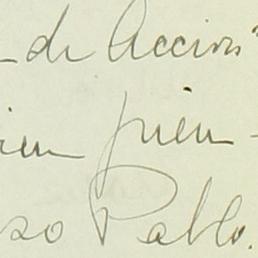 de Acción
ien quien
so Pablo.